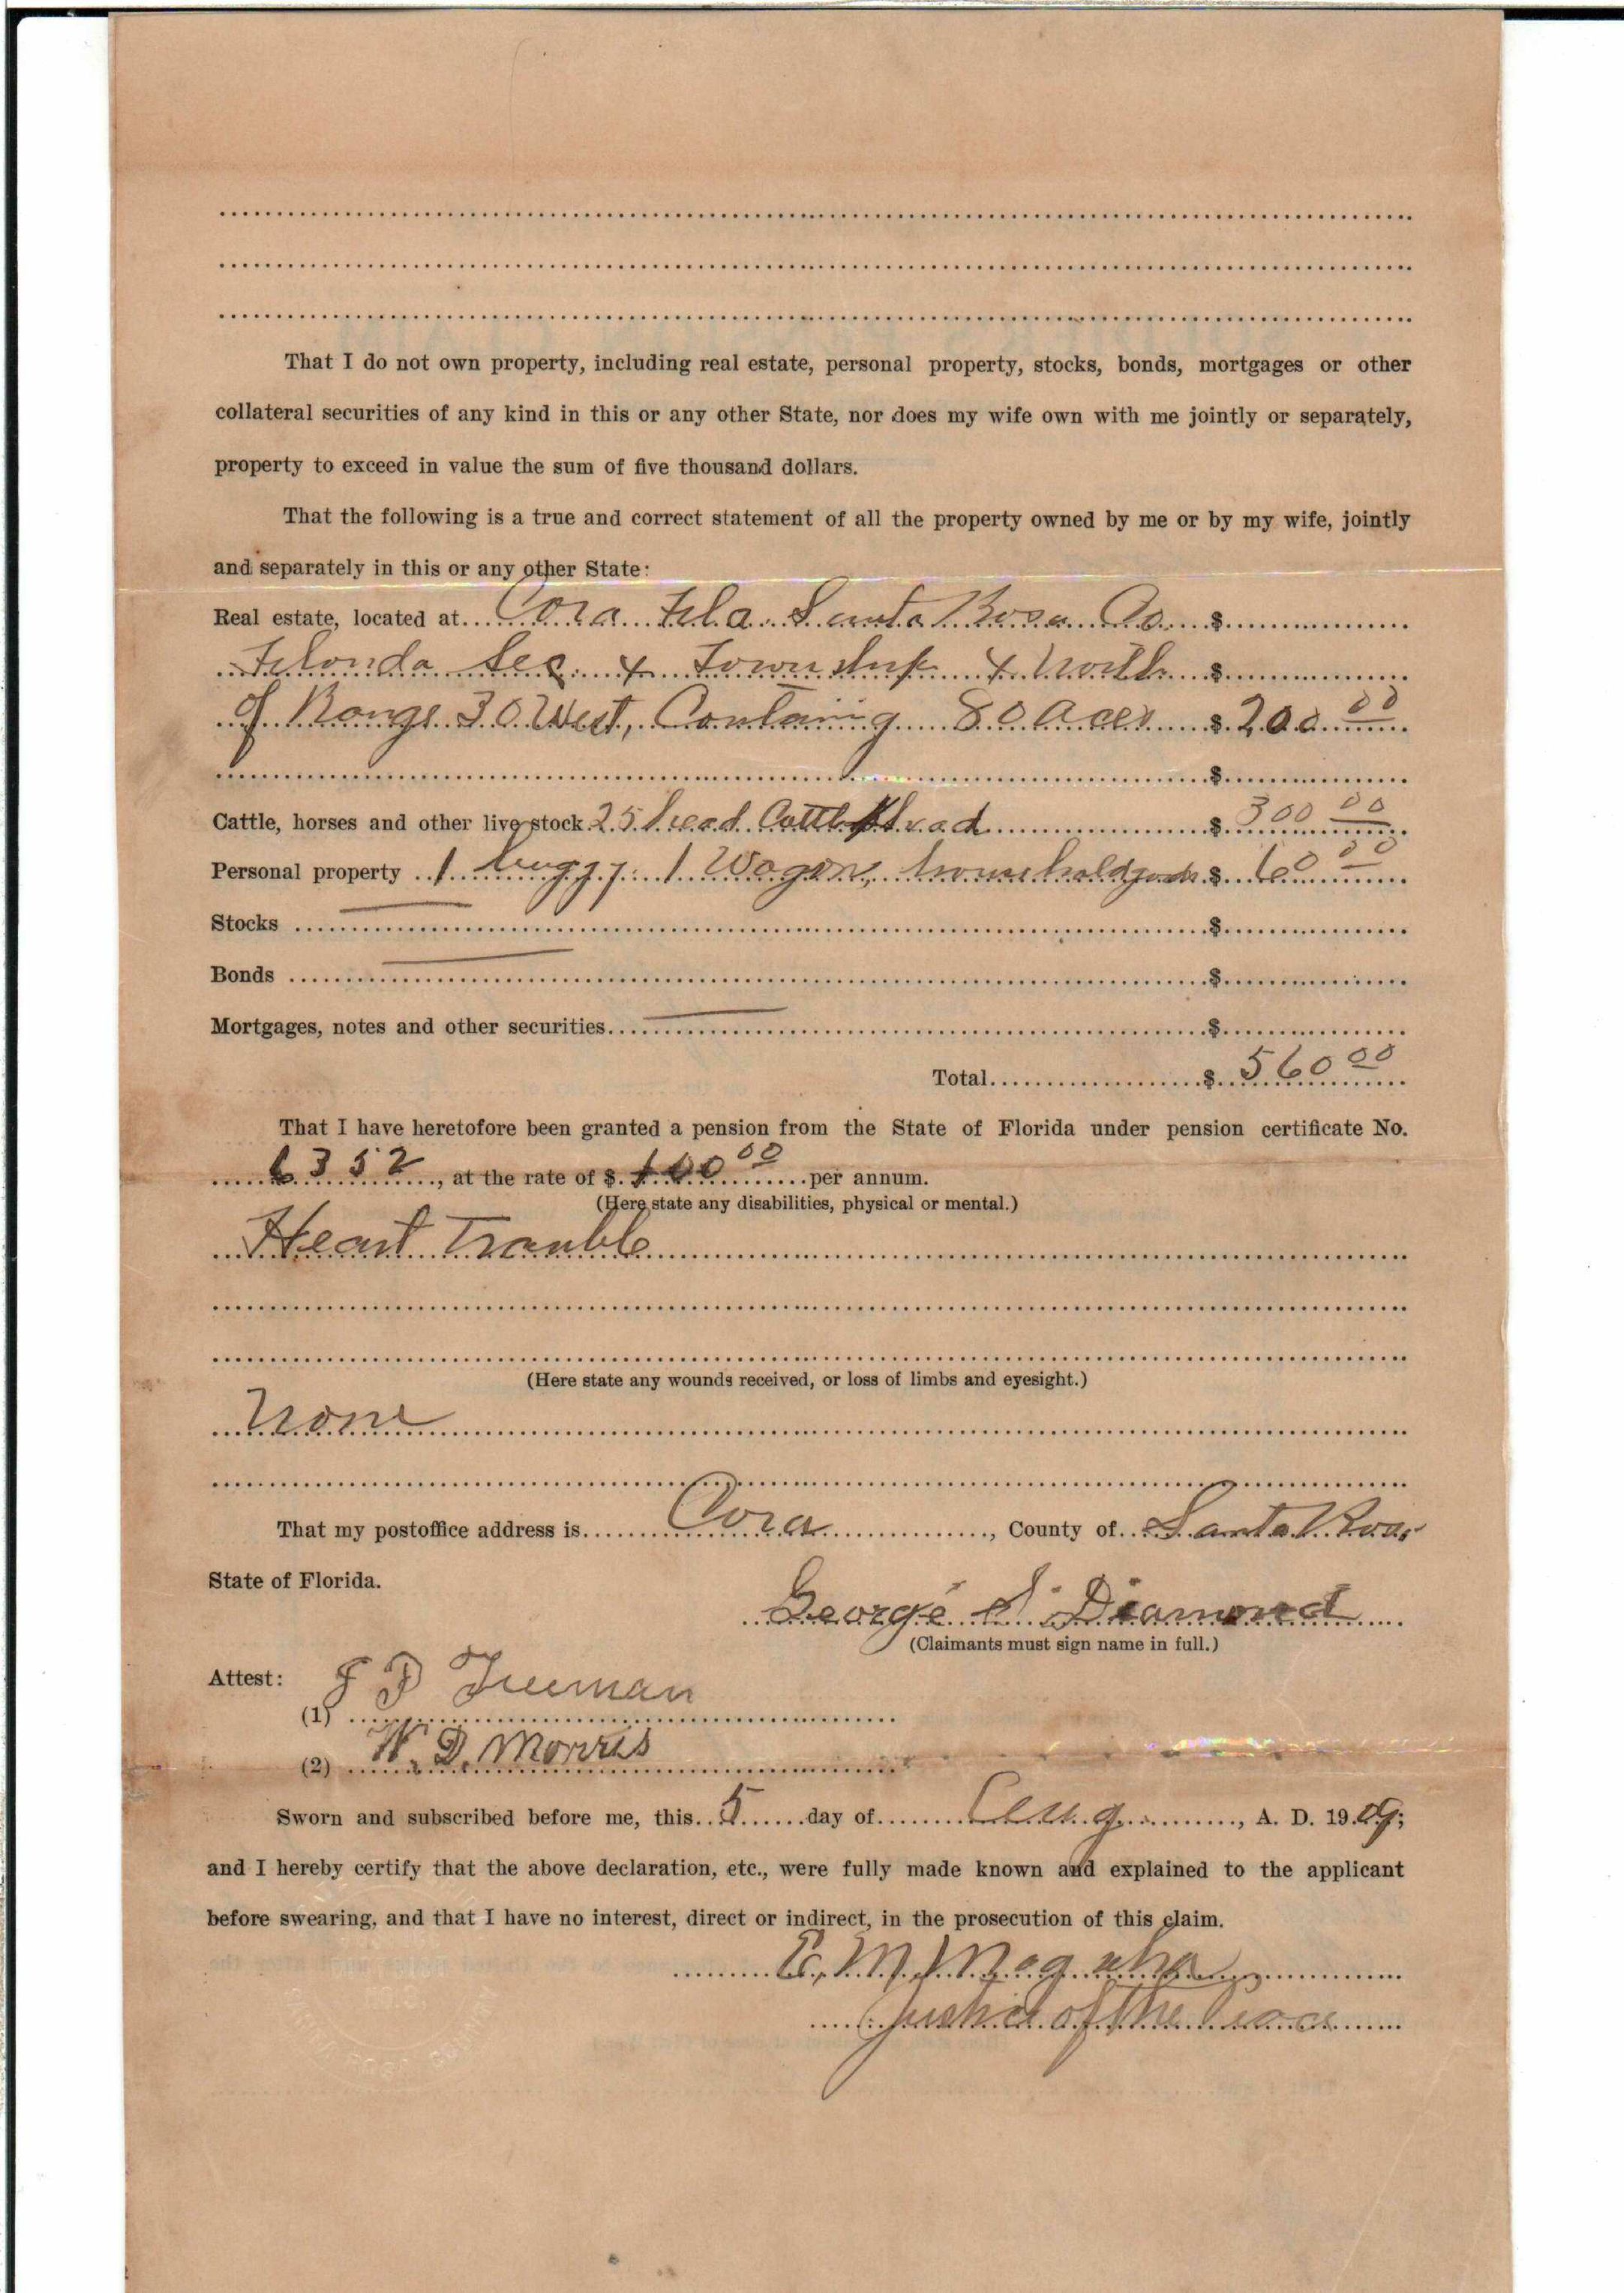 That I do not own property, including real estate, personal property, stocks, bonds, mortgages or other
collateral securities of any kind in this or any other State, nor does my wife own with me jointly or separately,
property to exceed in value the sum of five thousand dollars.
That the following is a true and correct statement of all the property owned by me or by my wife, jointly
and separately in this or any other State:
Real estate, located at Cora Fla. Santa Rosa Co. $
Florida Sec. 4 Township 4 North $
of Range 30 West, Containing 80 Aces $ 200 00
$
Cattle, horses and other live stock 25 head Cattle head $ 300 00
Personal property 1 buggy 1 Wagon, household goods $ 60 00
Stocks $
Bonds $
Mortgages, notes and other securities $
Total $ 560 00
That I have heretofore been granted a pension from the State of Florida under pension certificate No.
6352, at the rate of $ 100 00 per annum.
(Here state any disabilities, physical or mental.)
Heart Trouble
(Here state any wounds received, or loss of limbs and eyesight.)
None
That my postoffice address is Cora, County of Santa Rosa
State of Florida.
George S. Diamond
(Claimants must sign name in full.)
Attest:
(1) J D Freeman
(2) W. D. Morris
Sworn and subscribed before me, this 5 day of Aug., A. D. 1909;
and I hereby certify that the above declaration, etc., were fully made known and explained to the applicant
before swearing, and that I have no interest, direct or indirect, in the prosecution of this claim.
E. M. Magaha
Justice of the Peace